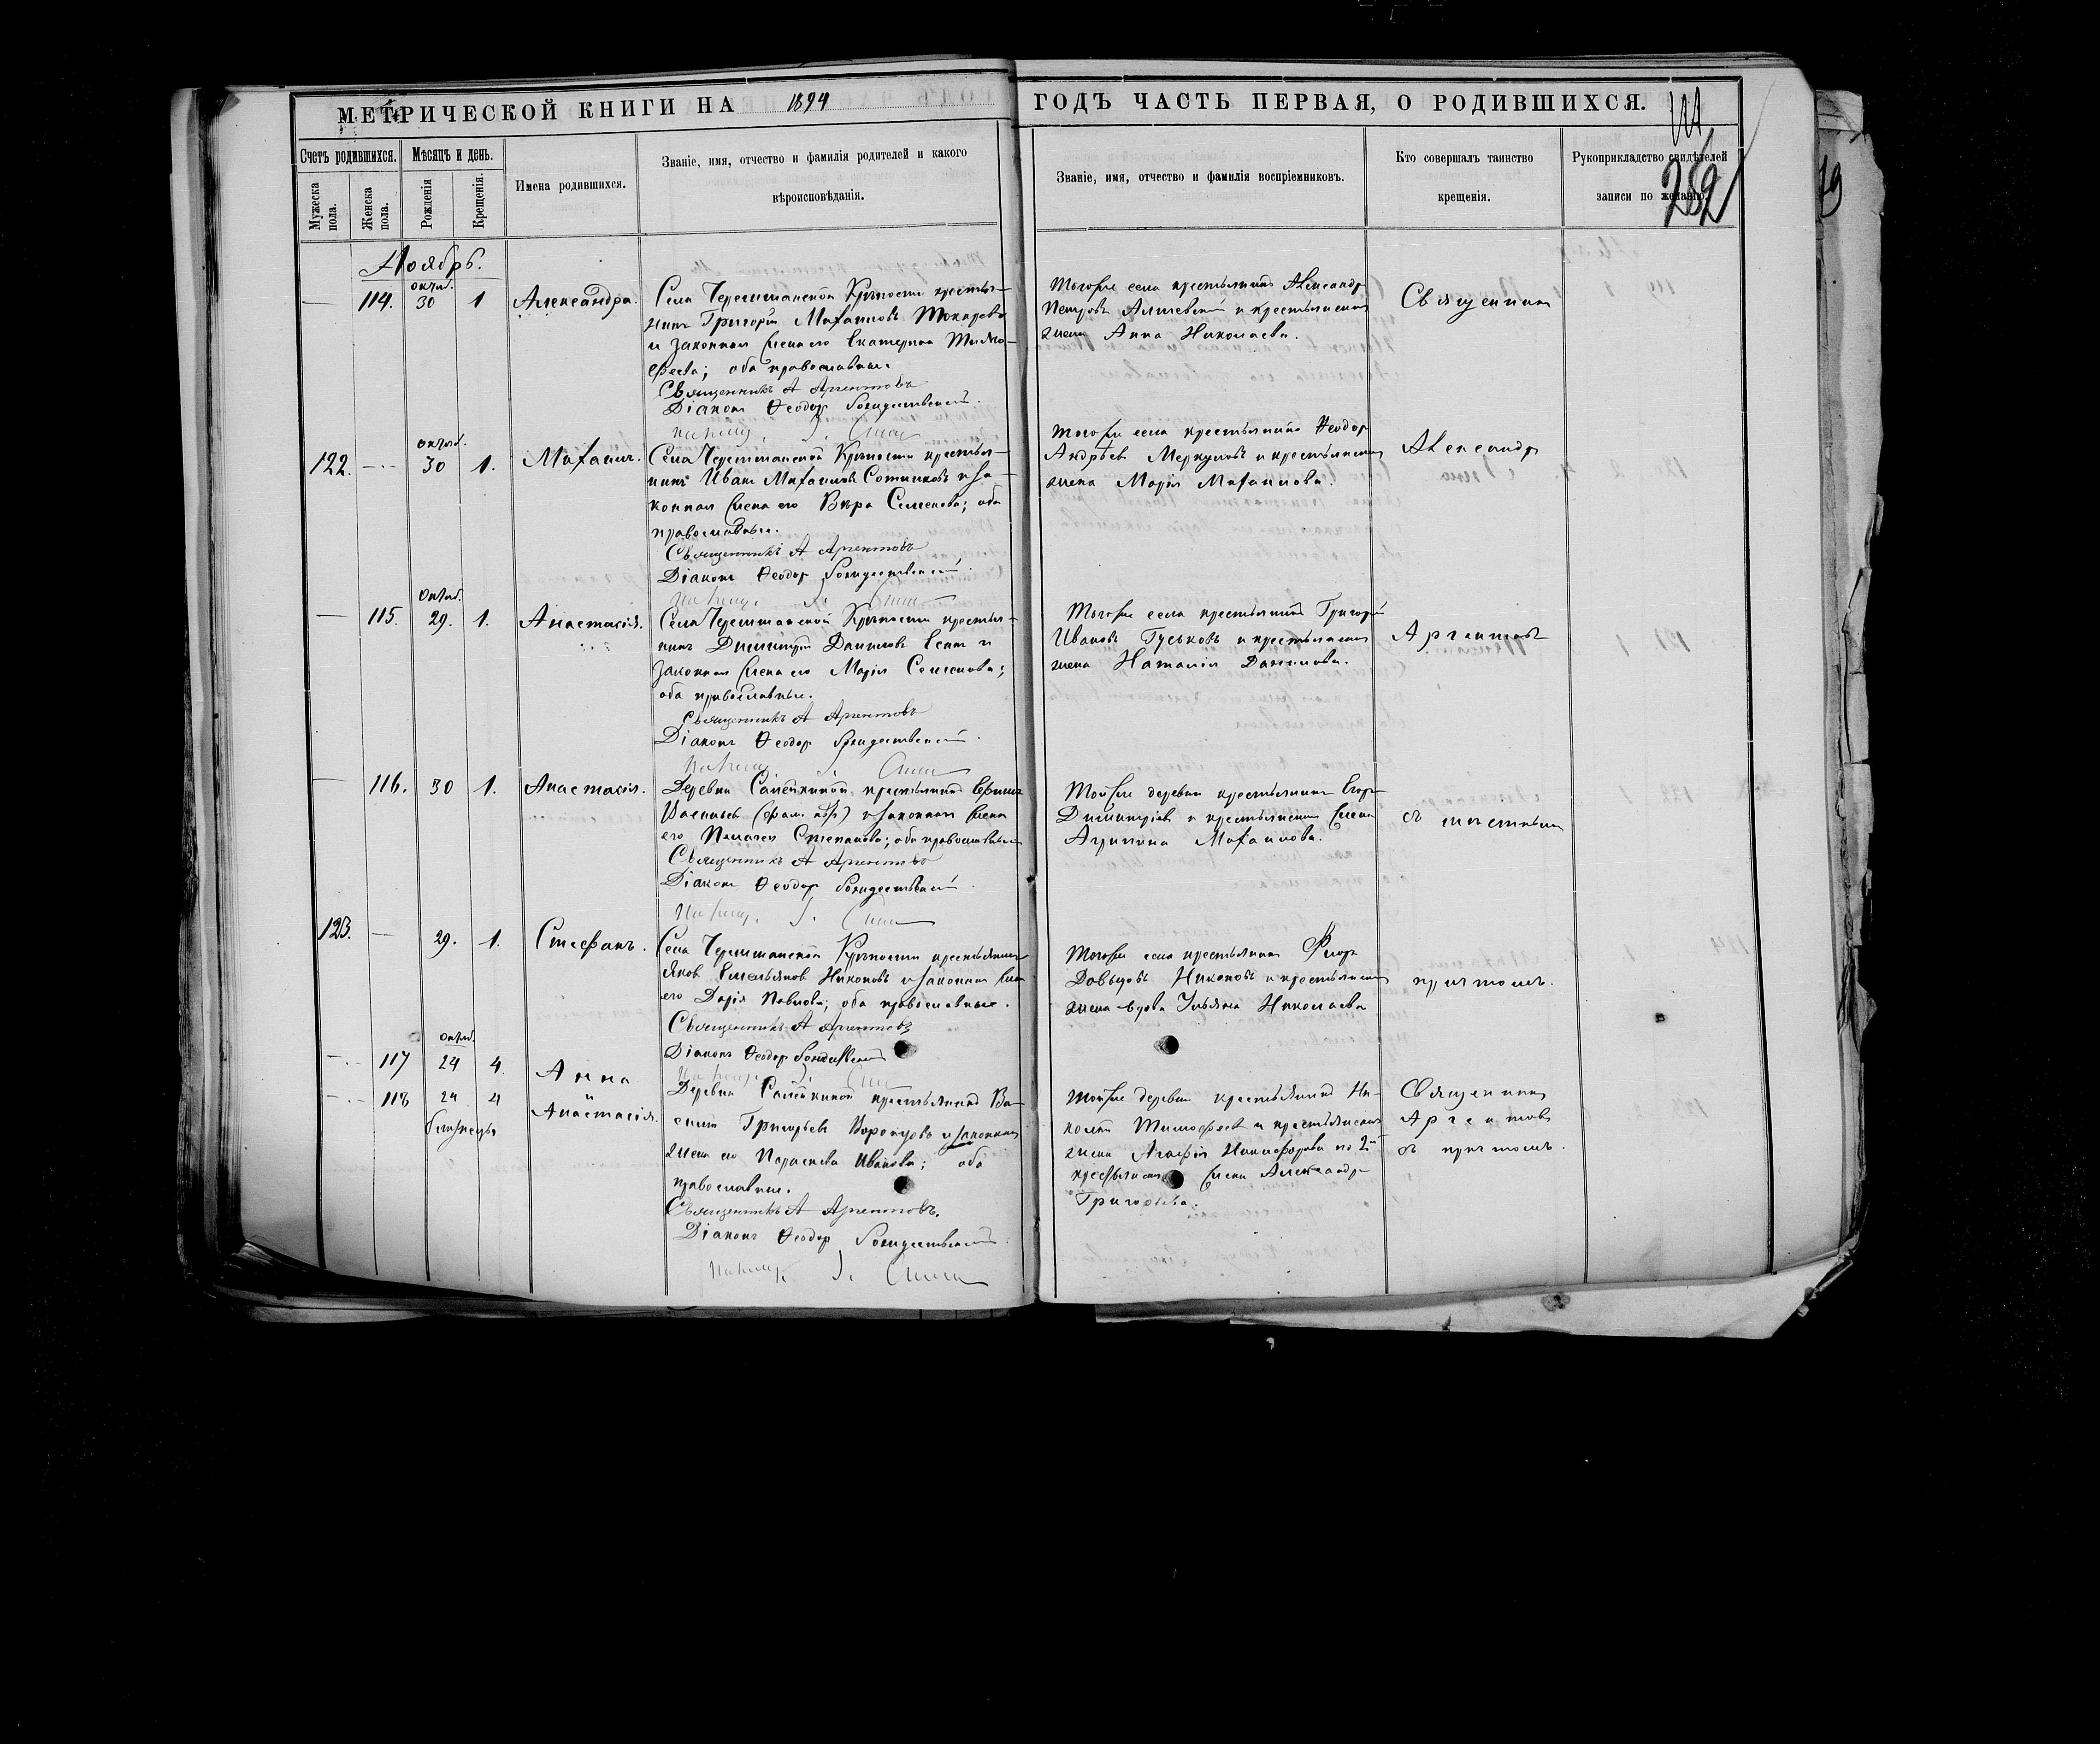 МЕТРИЧЕСКОЙ КНИГИ НА 1894
ГОДЪ ЧАСТЬ ПЕРВАЯ, О РОДИВШИХСЯ.
282
Счетъ родившихся.
Мужеска пола.
Женска пола.
Мѣсяцъ и день.
Рожденія
Крещенія.
Имена родившихся.
Званіе, имя, отчество и фамилія родителей и какого
вѣроисповѣданія.
Званіе, имя, отчество и фамилія воспріемниковъ.
Кто совершалъ таинство
крещенія.
Рукоприкладство свидѣтелей
записи по желанію.
Ноябрь.
114. октяб. 30 1 Александра.
Села Черемшанской Крѣпости крестья-
нинъ Григорій Михаиловъ Токаревъ
и законная жена его Екатерина Тимо-
феева; оба православные.
Священникъ А Аргентовъ
Діаконъ Ѳеодоръ Рождественскій.
Тогоже села крестьянинъ Александръ
Петровъ и крестьянская
жена Анна Николаева.
Священникъ
122. октяб. 30 1. Михаилъ.
Села Черемшанской Крѣпости крестья-
нинъ Иванъ Михаиловъ Сотниковъ и за-
конная жена его Вѣра Семенова; оба
православные.
Священникъ А Аргентовъ
Діаконъ Ѳеодоръ Рождественскій.
Тогоже села крестьянинъ Ѳеодоръ
Андрѣевъ Меркуловъ и крестьянская
жена Марія Михаилова.
Александръ
115. Октяб. 29. 1. Анастасія.
Села Черемшанской Крѣпости крестья-
нинъ Димитрій Даниловъ и
законная жена его Марія Семенова;
оба православные.
Священникъ А Аргентовъ
Діаконъ Ѳеодоръ Рождественскій.
Тогоже села крестьянинъ Григорій
Ивановъ Гуськовъ и крестьянская
жена Наталія Данилова.
Аргентовъ
116. 30 1. Анастасія.
Деревни крестьянинъ Ефимъ
и законная жена
его Пелагея Степанова; оба православные
Священникъ А Аргентовъ
Діаконъ Ѳеодоръ Рождественскій.
Тойже деревни крестьянинъ Егоръ
Димитріевъ и крестьянская жена
Агрипина Михаилова.
съ
123. 29. 1. Стефанъ.
Села Черемшанской Крѣпости крестьянинъ
Яковъ Емельяновъ Никоновъ и законная жена
его Дарія Павлова; оба православные.
Священникъ А Аргентовъ
Діаконъ Ѳеодоръ Рождественскій
Тогоже села крестьянинъ
Давыдовъ Никоновъ и крестьянская
жена вдова Ульяна Николаева
причтомъ.
117 октяб. 24 4. Анна
118 24 4 и Анастасія.
близнецы
Деревни крестьянинъ Ва-
силій Григорьевъ и законная
жена его Параскева Иванова; оба
православные.
Священникъ А Аргентовъ.
Діаконъ Ѳеодоръ Рождественскій.
Тойже деревни крестьянинъ Ни-
колай Тимофеевъ и крестьянская
жена Агафія Никифорова по 2й
крестьянская жена Александра
Григорьева.
Священникъ
Аргентовъ
съ причтомъ.